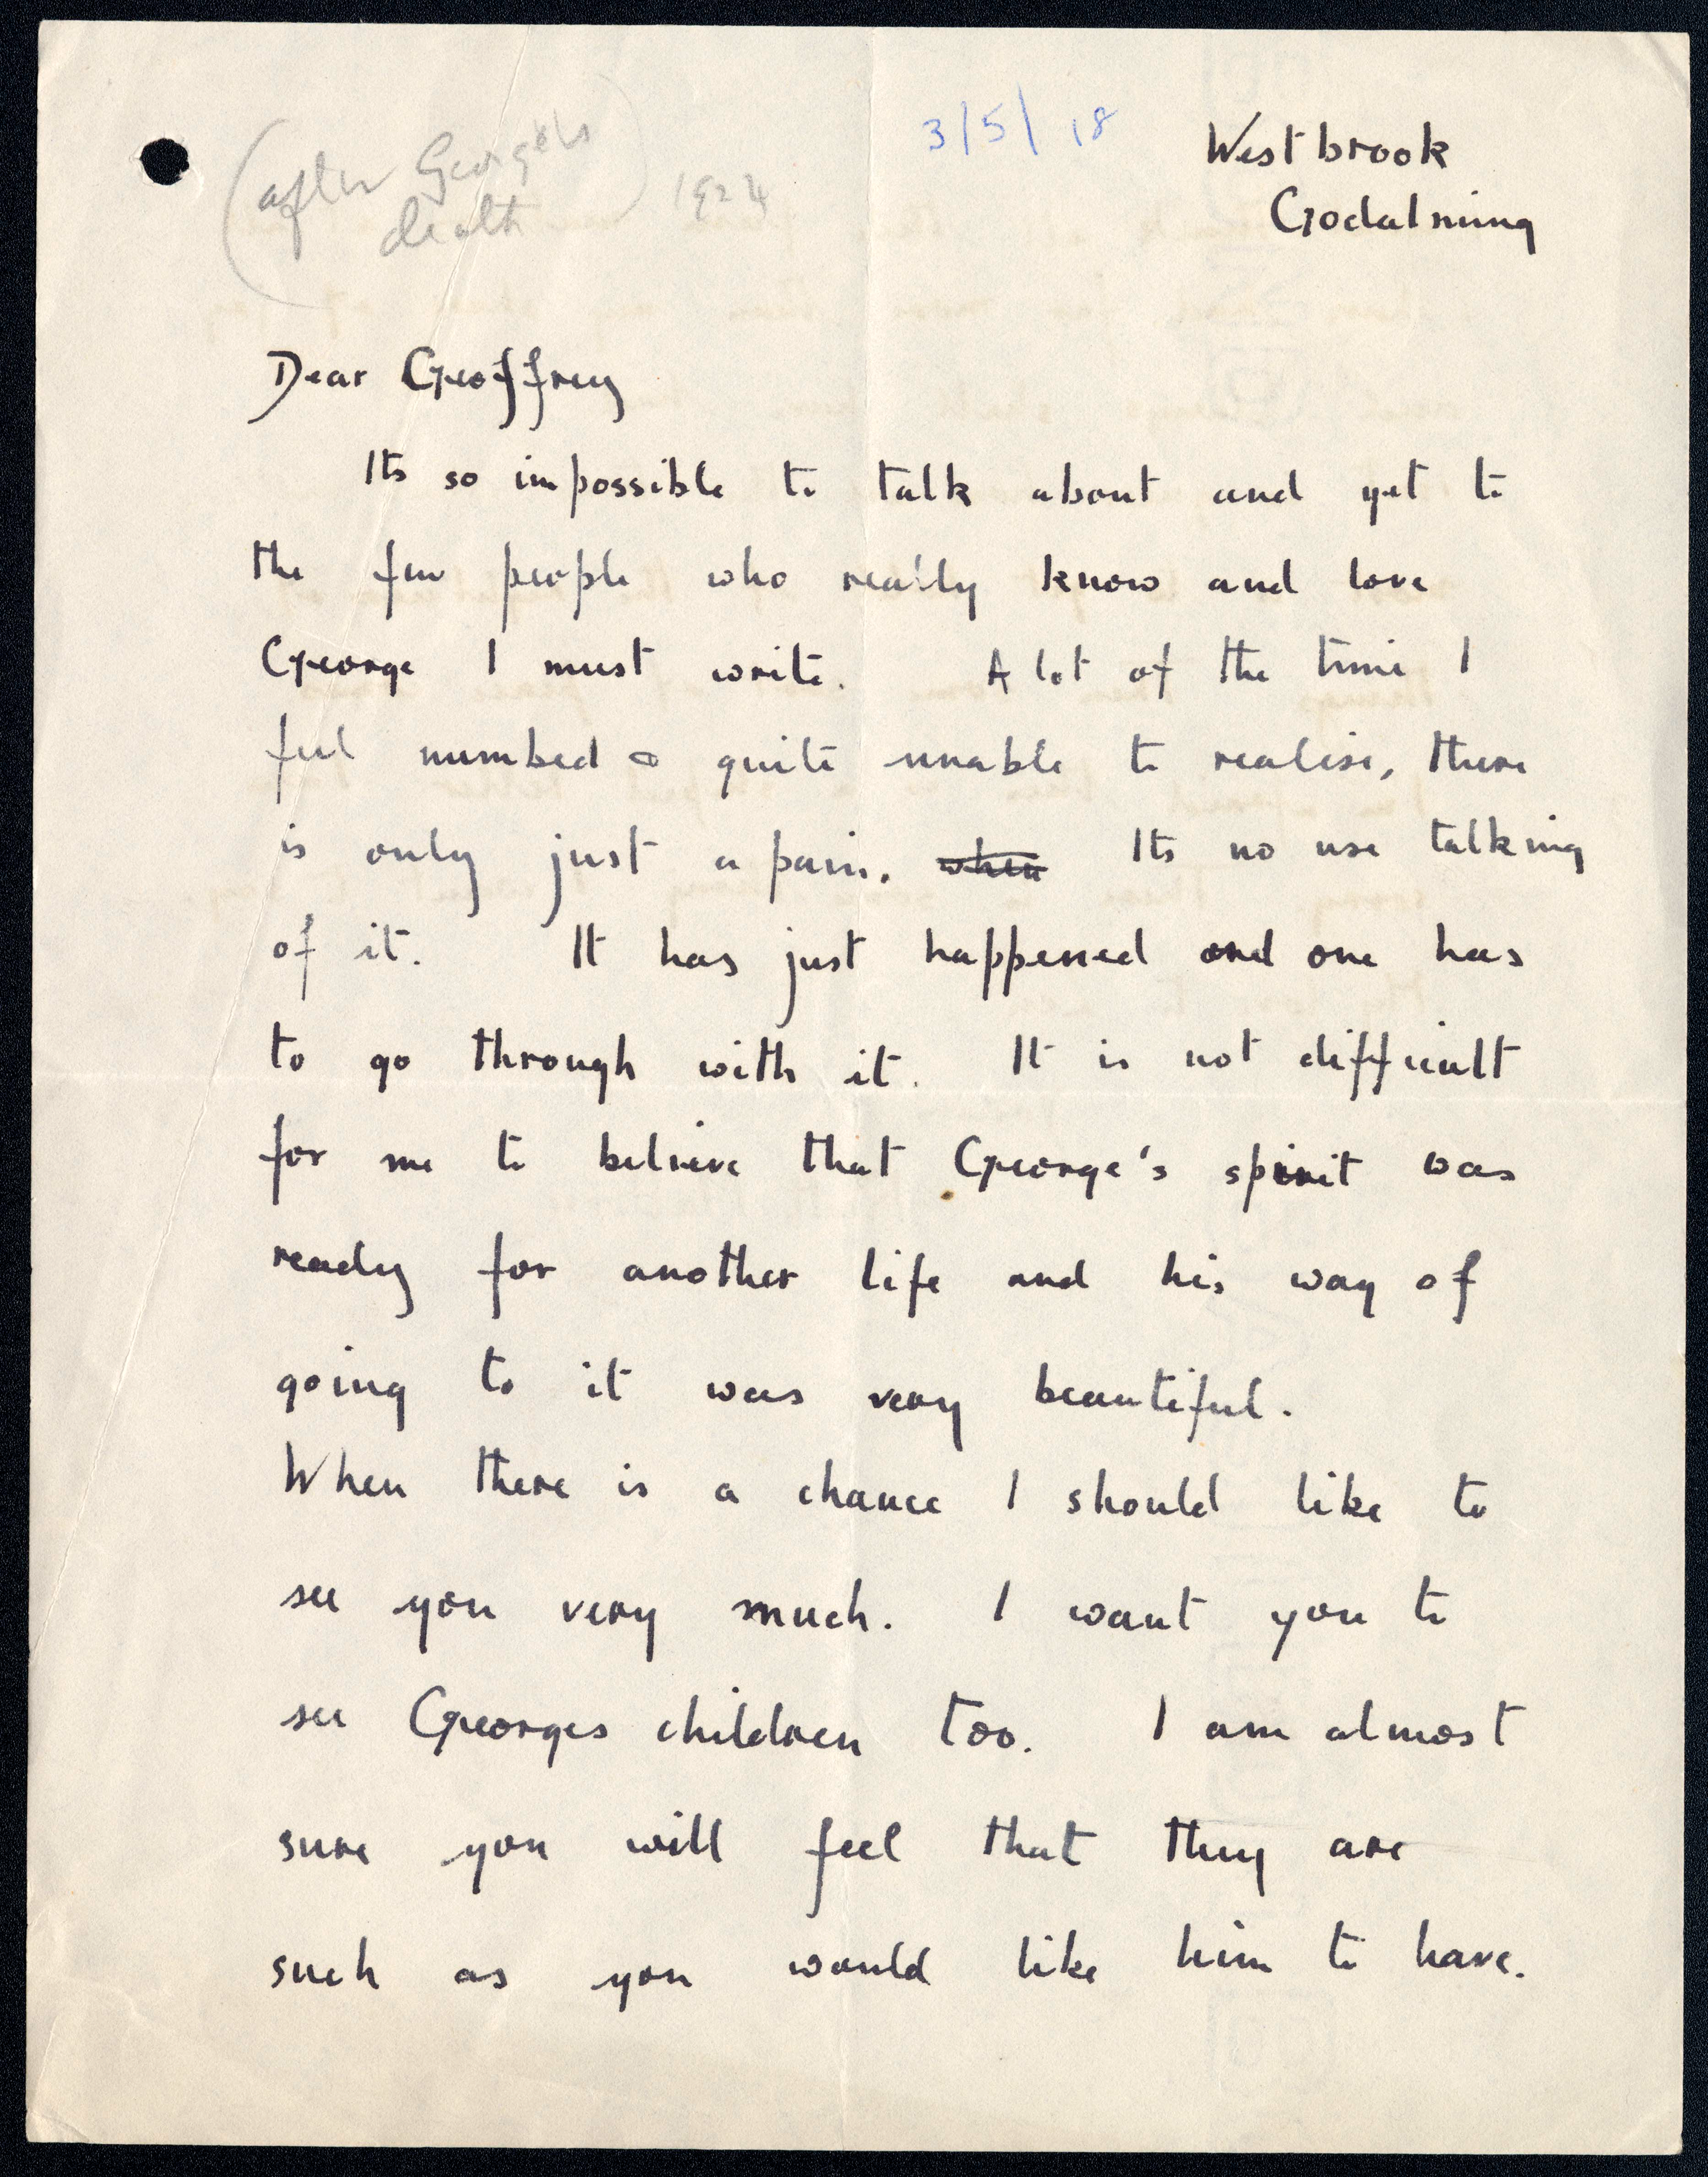 (after George's
death) 1924
3/5/18
Westbrook
Godalming
Dear Geoffrey
Its so impossible to talk about and yet to
the few people who really know and love
George I must write. A lot of the time I
feel numbed & quite unable to realise, there
is only just a pain. when Its no use talking
of it. It has just happened and one has
to go through with it. It is not difficult
for me to believe that George's spirit was
ready for another life and his way of
going to it was very beautiful.
When there is a chance I should like to
see you very much. I want you to
see Georges children too. I am almost
sure you will feel that they are
such as you would like him to have.